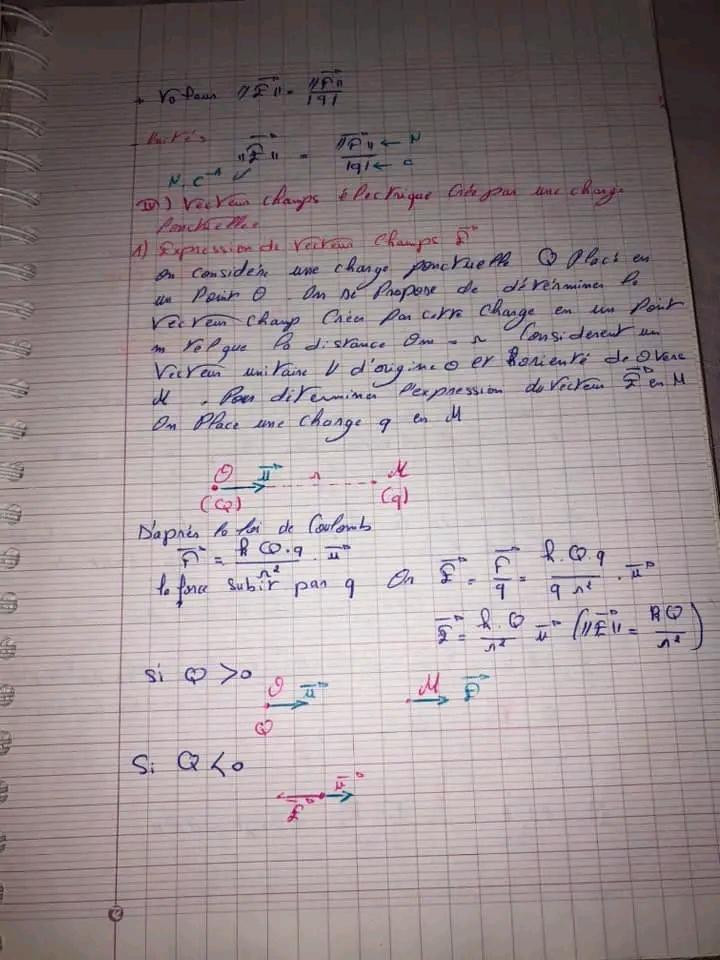 + Valeur ||E|| = ||F|| / |q|
Unités
||E|| = ||F|| ← N / |q| ← C
N.C⁻¹
IV) Vecteur Champs électrique Crée par une charge
Ponctuelle
1) Expression de Vecteur Champs E
On considère une charge ponctuelle Q Placé en
un Point O. On se Propose de déterminer le
Vecteur Champ Créer Par cette Charge en un Point
m tel que la distance Om = r Considerent un
Vecteur unitaire U d'origine O et orienté de O vers
M. Pour déterminer l'expression du vecteur E en M
On Place une charge q en M
O u r M
(Q) (q)
D'après la loi de Coulomb
F = k Q.q / r² . u
la force subir par q On E = F / q = k.Q.q / q r² . u
E = k.Q / r² u (||E|| = kQ / r²)
Si Q > 0 O u M E
Q
Si Q < 0
u
E